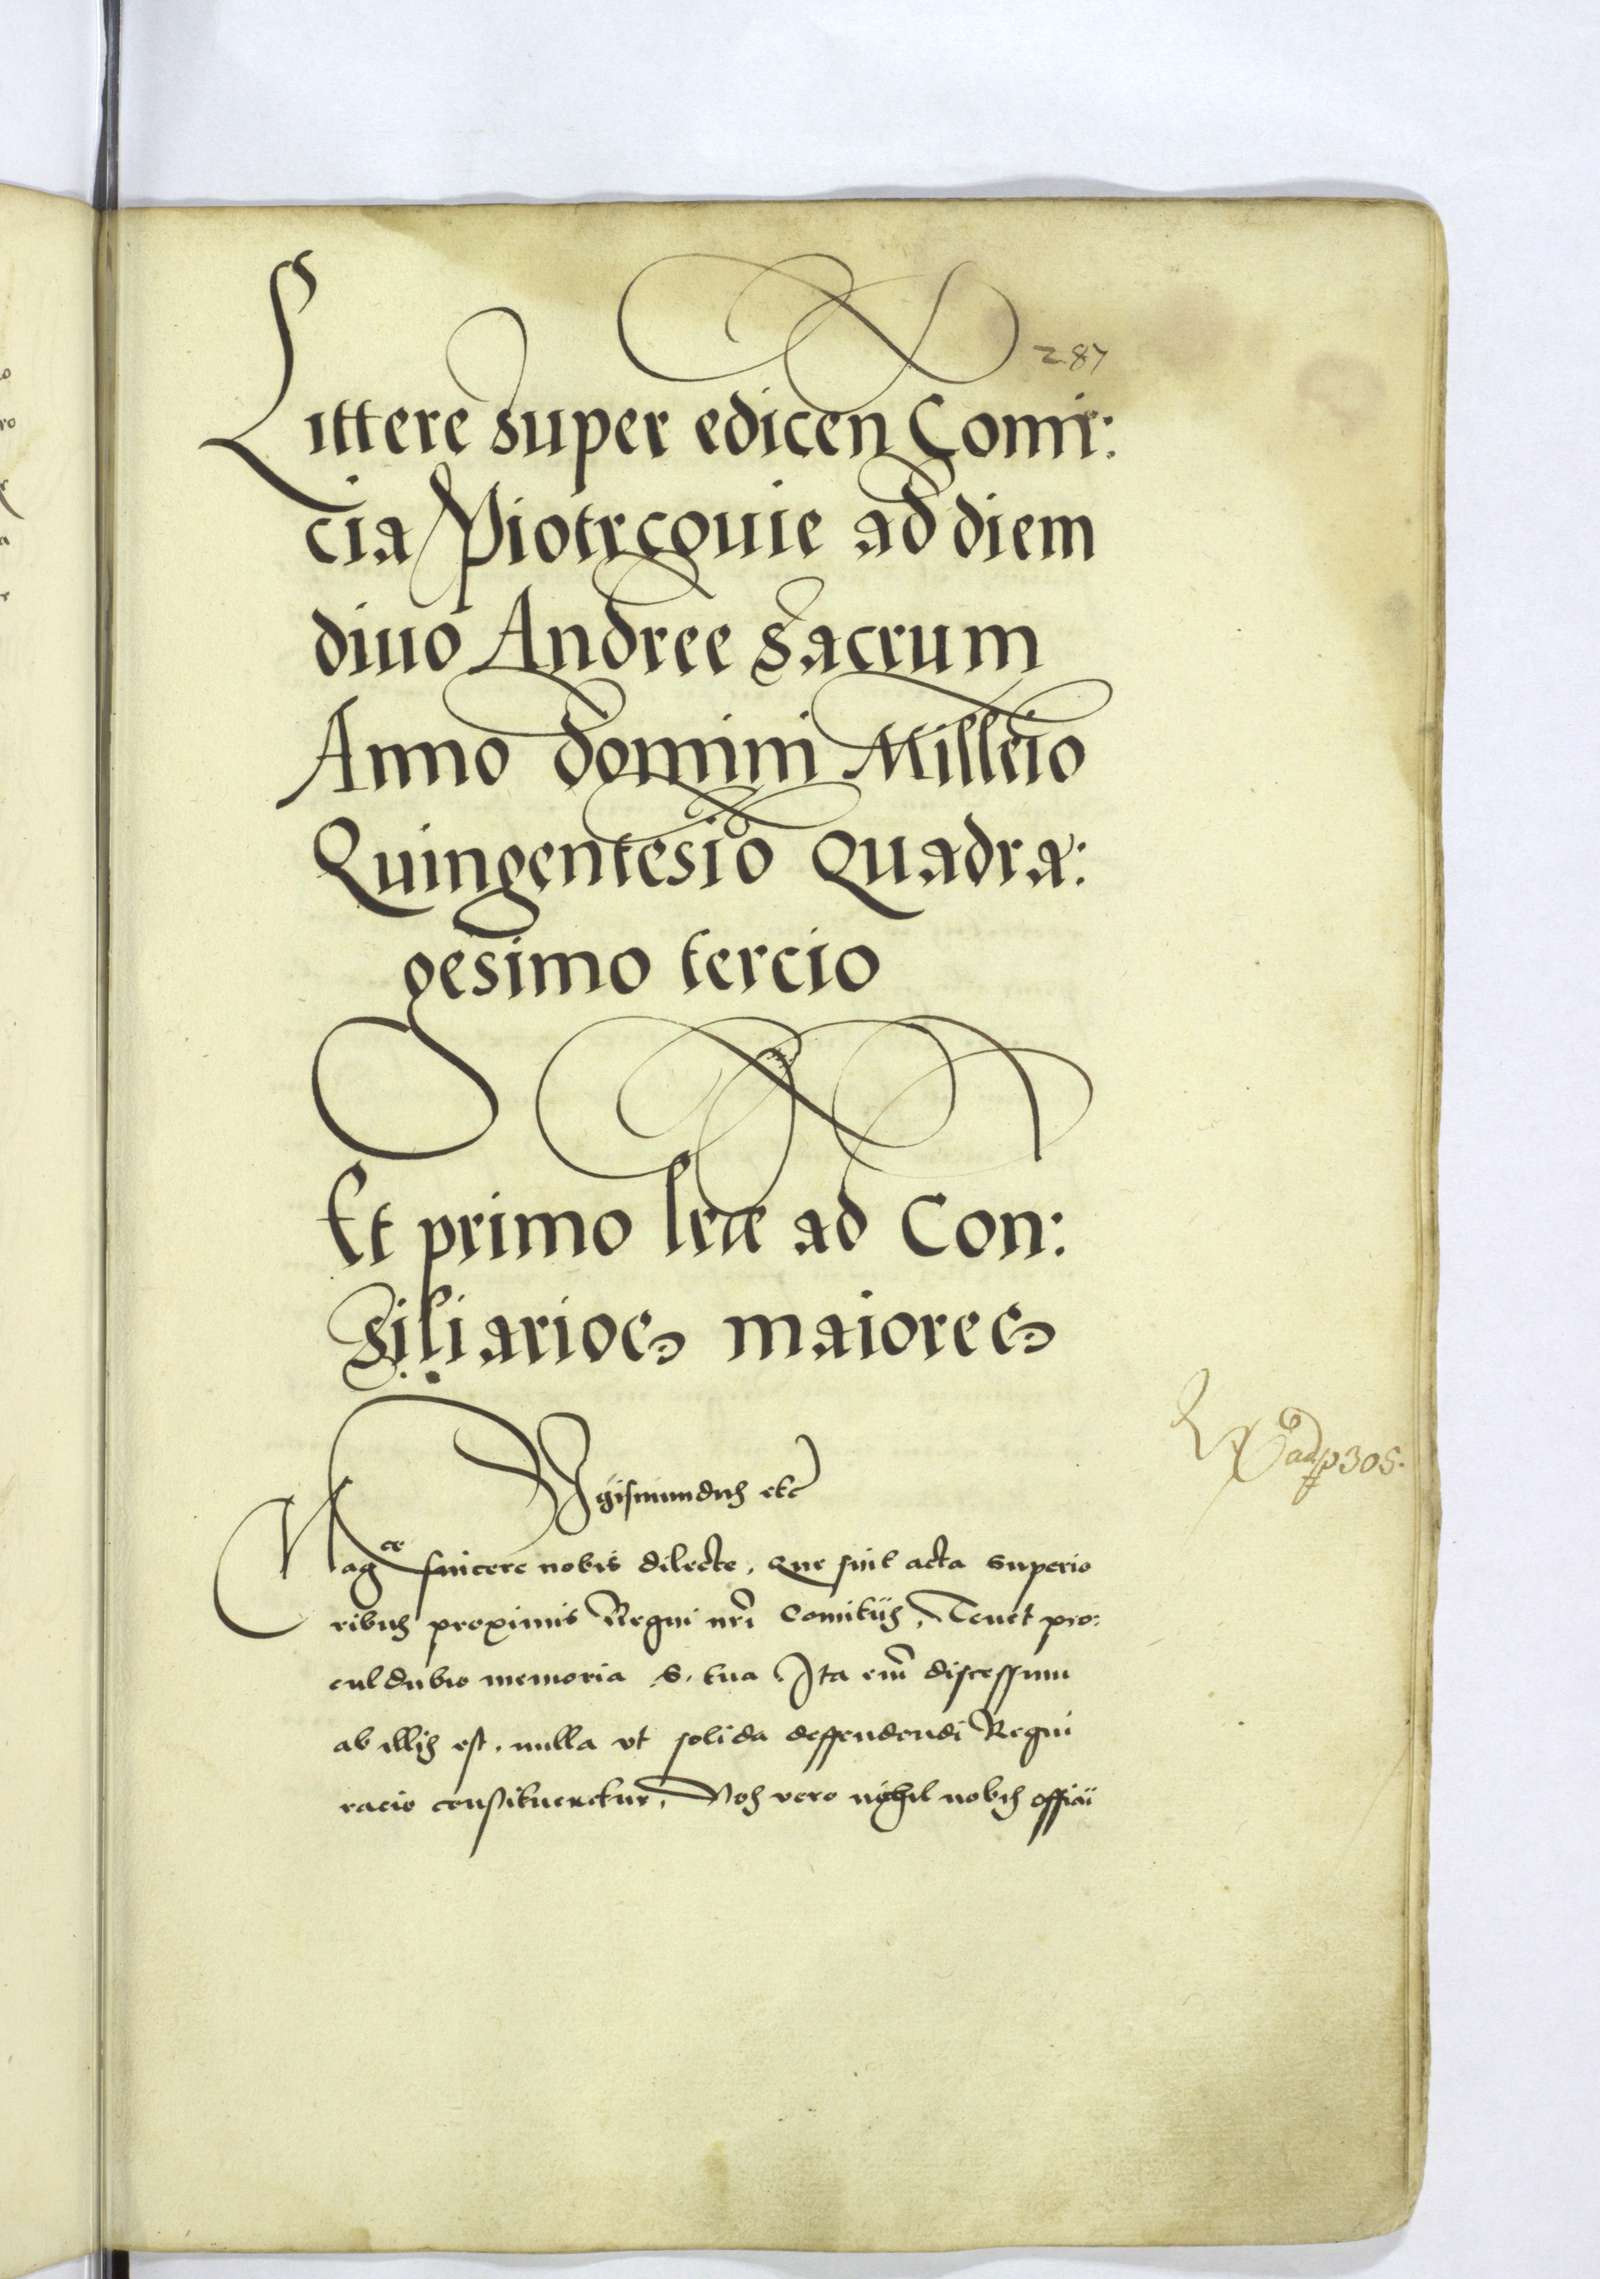 287
Littere super edicen Comi:
cia Piotrcouie ad diem
diuo Andree sacrum
Anno domini Milleio
Quingentesio Quadra:
gesimo tercio
Et primo lrae ad Con:
siliarios maiores
Sigismundus etc
Magce sincere nobis dilecte, Que sint acta superio
ribus proximis Regni nri Comitiis, Tenet pro:
cul dubio memoria S. tua Ita eni discessum
ab illis est, nulla vt solida deffendendi Regni
racio constitueretur, Nos vero nichil nobis officii
ad p 305.